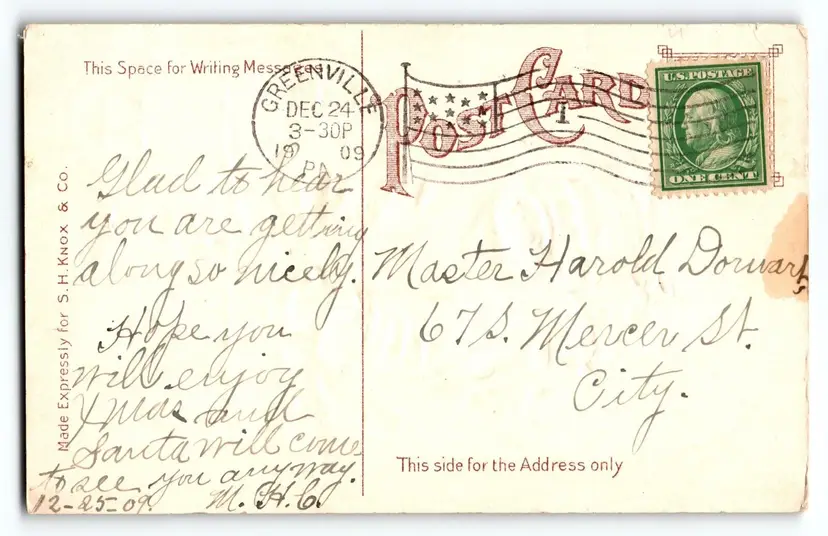 This Space for Writing Messages
GREENVILLE
DEC 24
3-30P
19 09
PA.
POST CARD
1
U.S. POSTAGE
ONE CENT
Made Expressly for S. H. KNOX & Co.
Glad to hear
you are getting
along so nicely.
Hope you
will enjoy
Xmas and
Santa will come
to see you anyway.
12-25-09. M. H. C.
Master Harold Dorwart,
67 S. Mercer St.
City.
This side for the Address only